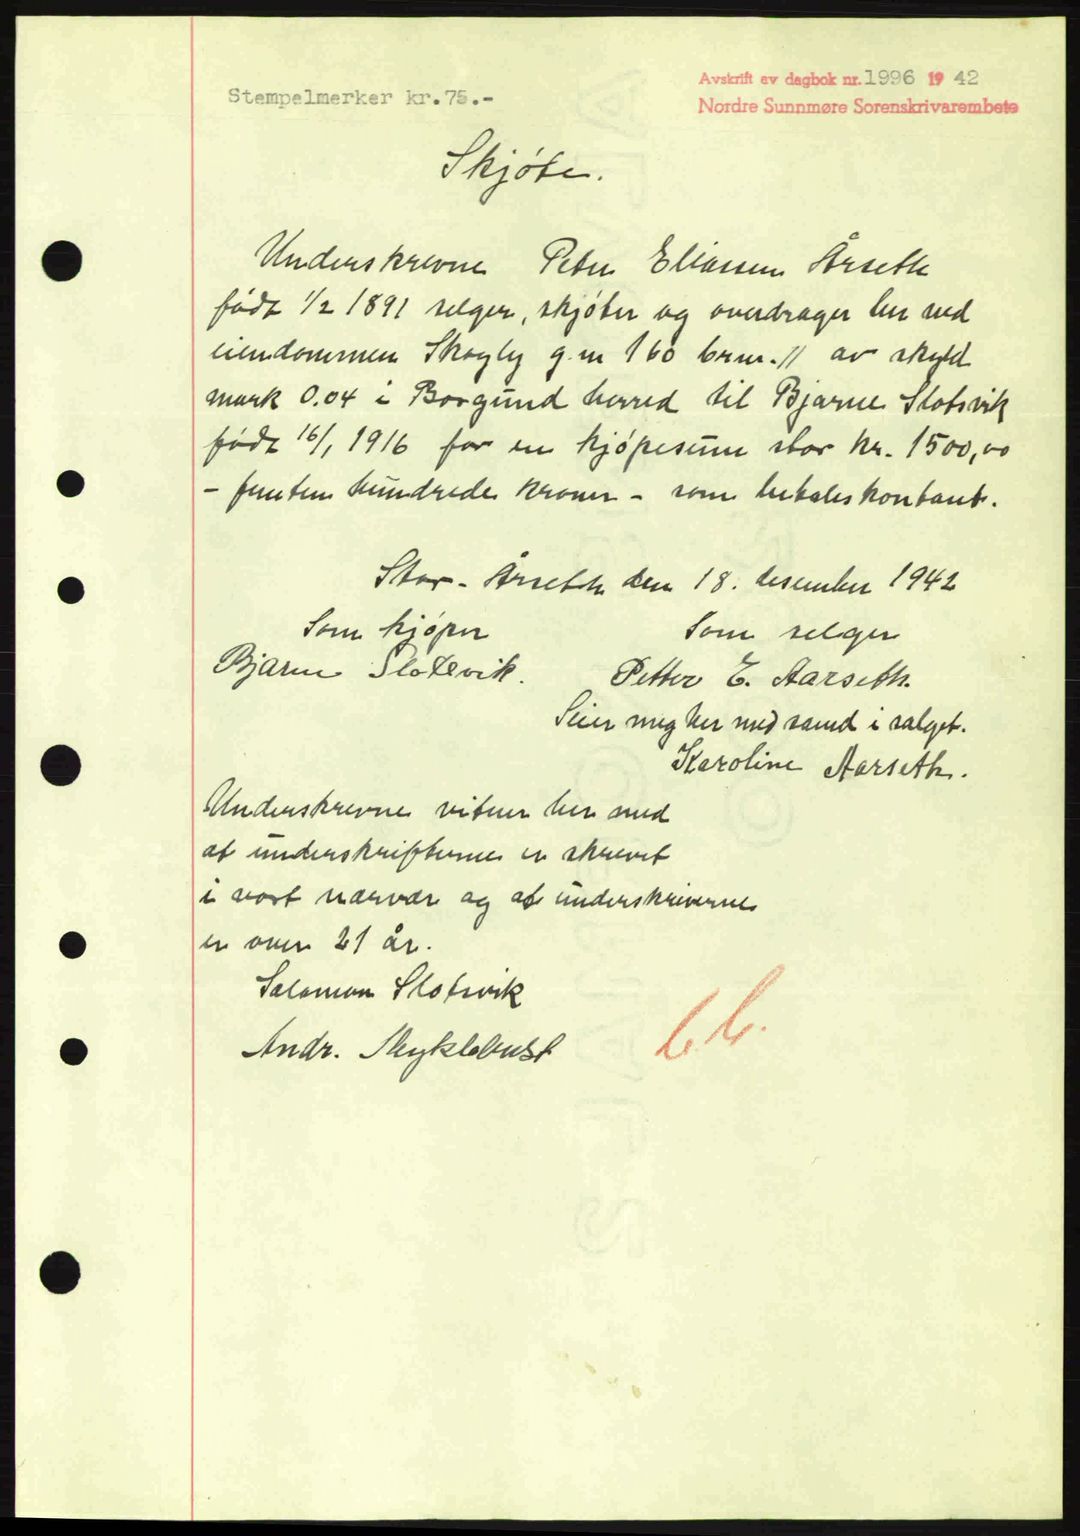 Stempelmerker kr.75.-
Avskrift av dagbok nr. 1996 19 42
Nordre Sunnmøre Sorenskrivarembete
Skjøte.
Underskrevne Peter Eliassen Årseth
født 1/2 1891 selger, skjøter og overdrager her ved
eiendommen Skogly g.nr 160 brnr. 11 av skyld
mark 0.04 i Borgund herred til Bjarne Slotsvik
født 16/1 1916 for en kjøpesum stor kr. 1500,00
- femten hundrede kroner - som betales kontant.
Stor-Årseth den 18. desember 1942
Som kjøper Som selger
Bjarne Slotsvik. Petter E. Aarseth.
Seier meg her med samd i salget.
Karoline Aarseth.
Underskrevne vitner her med
at underskrifterne er skrevet
i vort nærvær og at underskriverne
er over 21 år.
Salamon Slotsvik
Andr. Myklebust